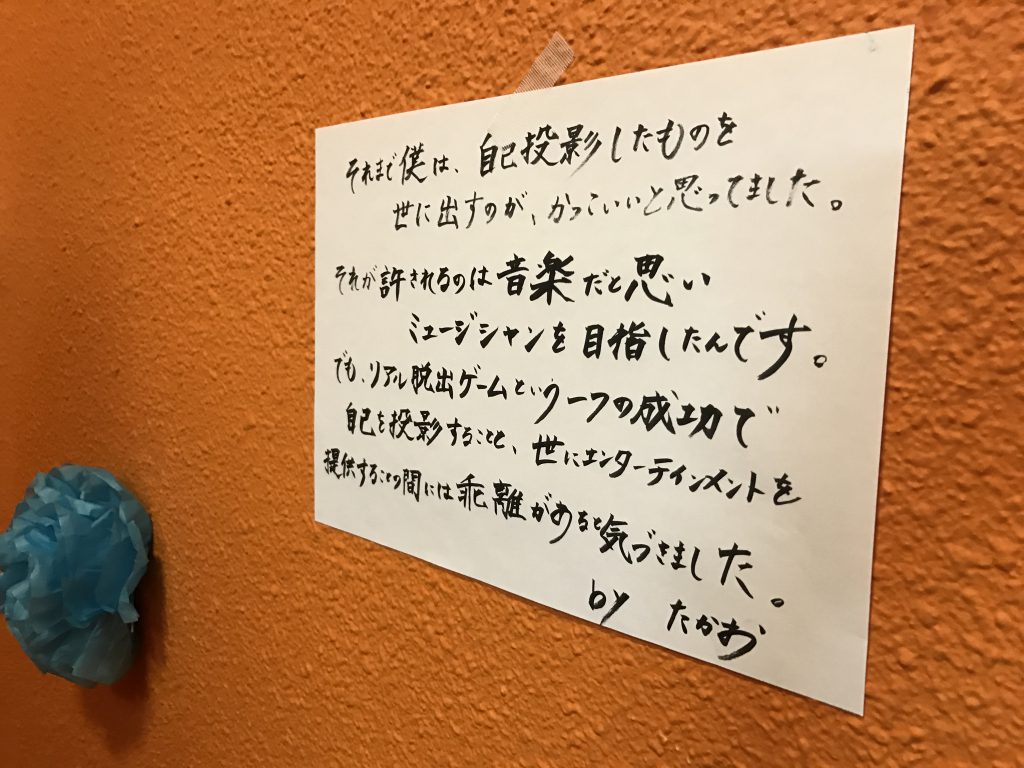 それまで僕は、自己投影したものを
世に出すのが、かっこいいと思ってました。
それが許されるのは音楽だと思い
ミュージシャンを目指したんです。
でも、リアル脱出ゲームという一つの成功で
自己を投影することと、世にエンターテインメントを
提供することの間には乖離があると気づきました。
by たかお